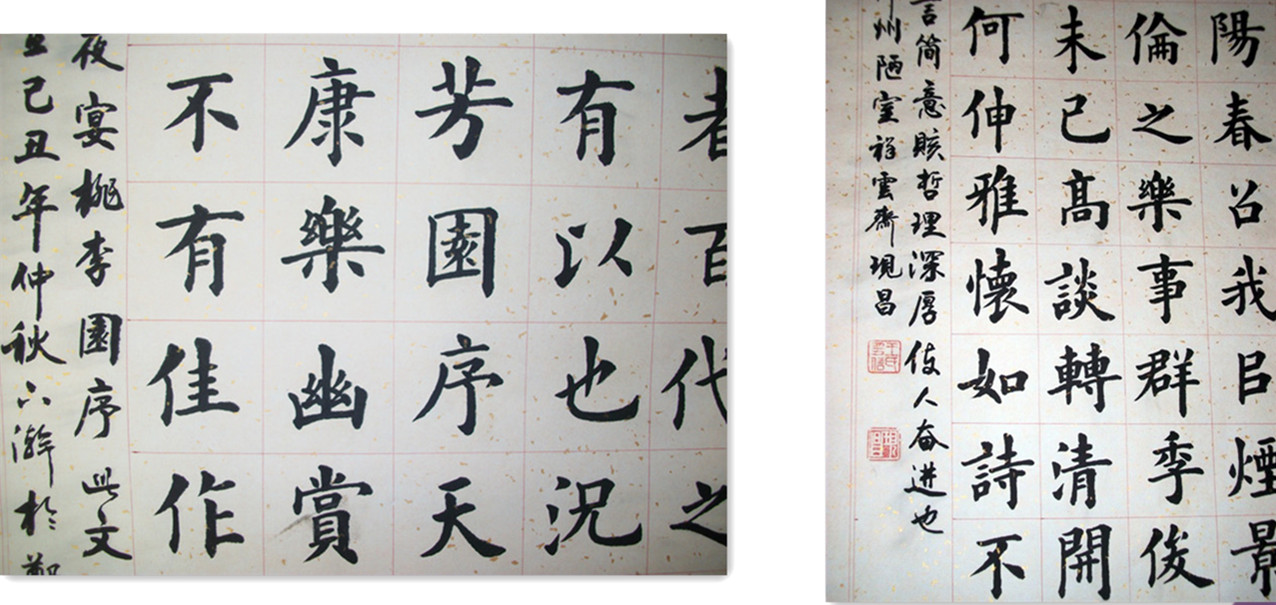 者百代之
有以也況
芳園序天
康樂幽賞
不有佳作
夜宴桃李園序 此文
己丑年仲秋於
陽春召我㠯煙景
倫之樂事群季俊
未已髙談轉清開
何伸雅懷如詩不
言简意賅哲理深厚使人奋進也
州陋室祥雲齋現昌